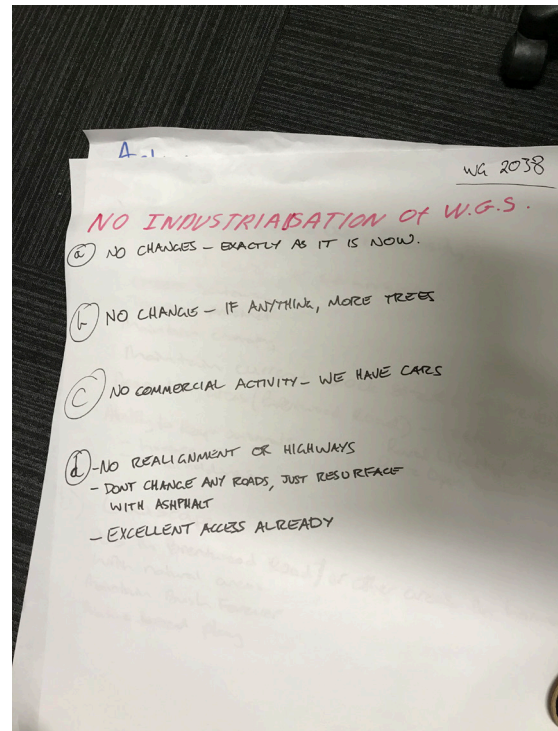 WG 2038
NO INDUSTRIALISATION OF W.G.S.
(a) NO CHANGES - EXACTLY AS IT IS NOW.
(b) NO CHANGE - IF ANYTHING, MORE TREES
(C) NO COMMERCIAL ACTIVITY - WE HAVE CARS
(d) - NO REALIGNMENT OR HIGHWAYS
- DONT CHANGE ANY ROADS, JUST RESURFACE
WITH ASHPHALT
- EXCELLENT ACCESS ALREADY